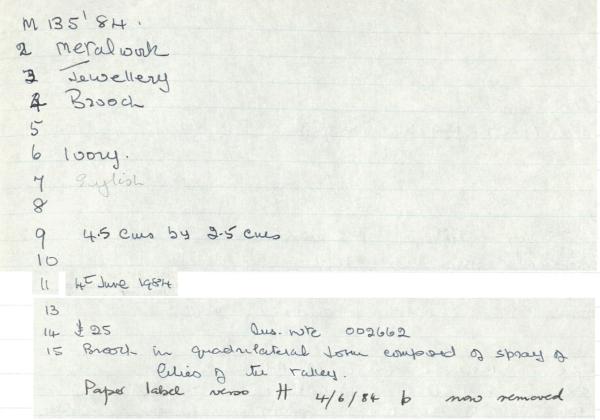 M 135' 84.
2 Metalwork
3 Jewellery
4 Brooch
5
6 Ivory.
7 English
8
9 4.5 cms by 2.5 cms
10
11 4th June 1984
13
14 £25 Ins. note 002662
15 Brooch in quadrilateral form composed of spray of
lilies of the valley.
Paper label verso H 4/6/84 b now removed